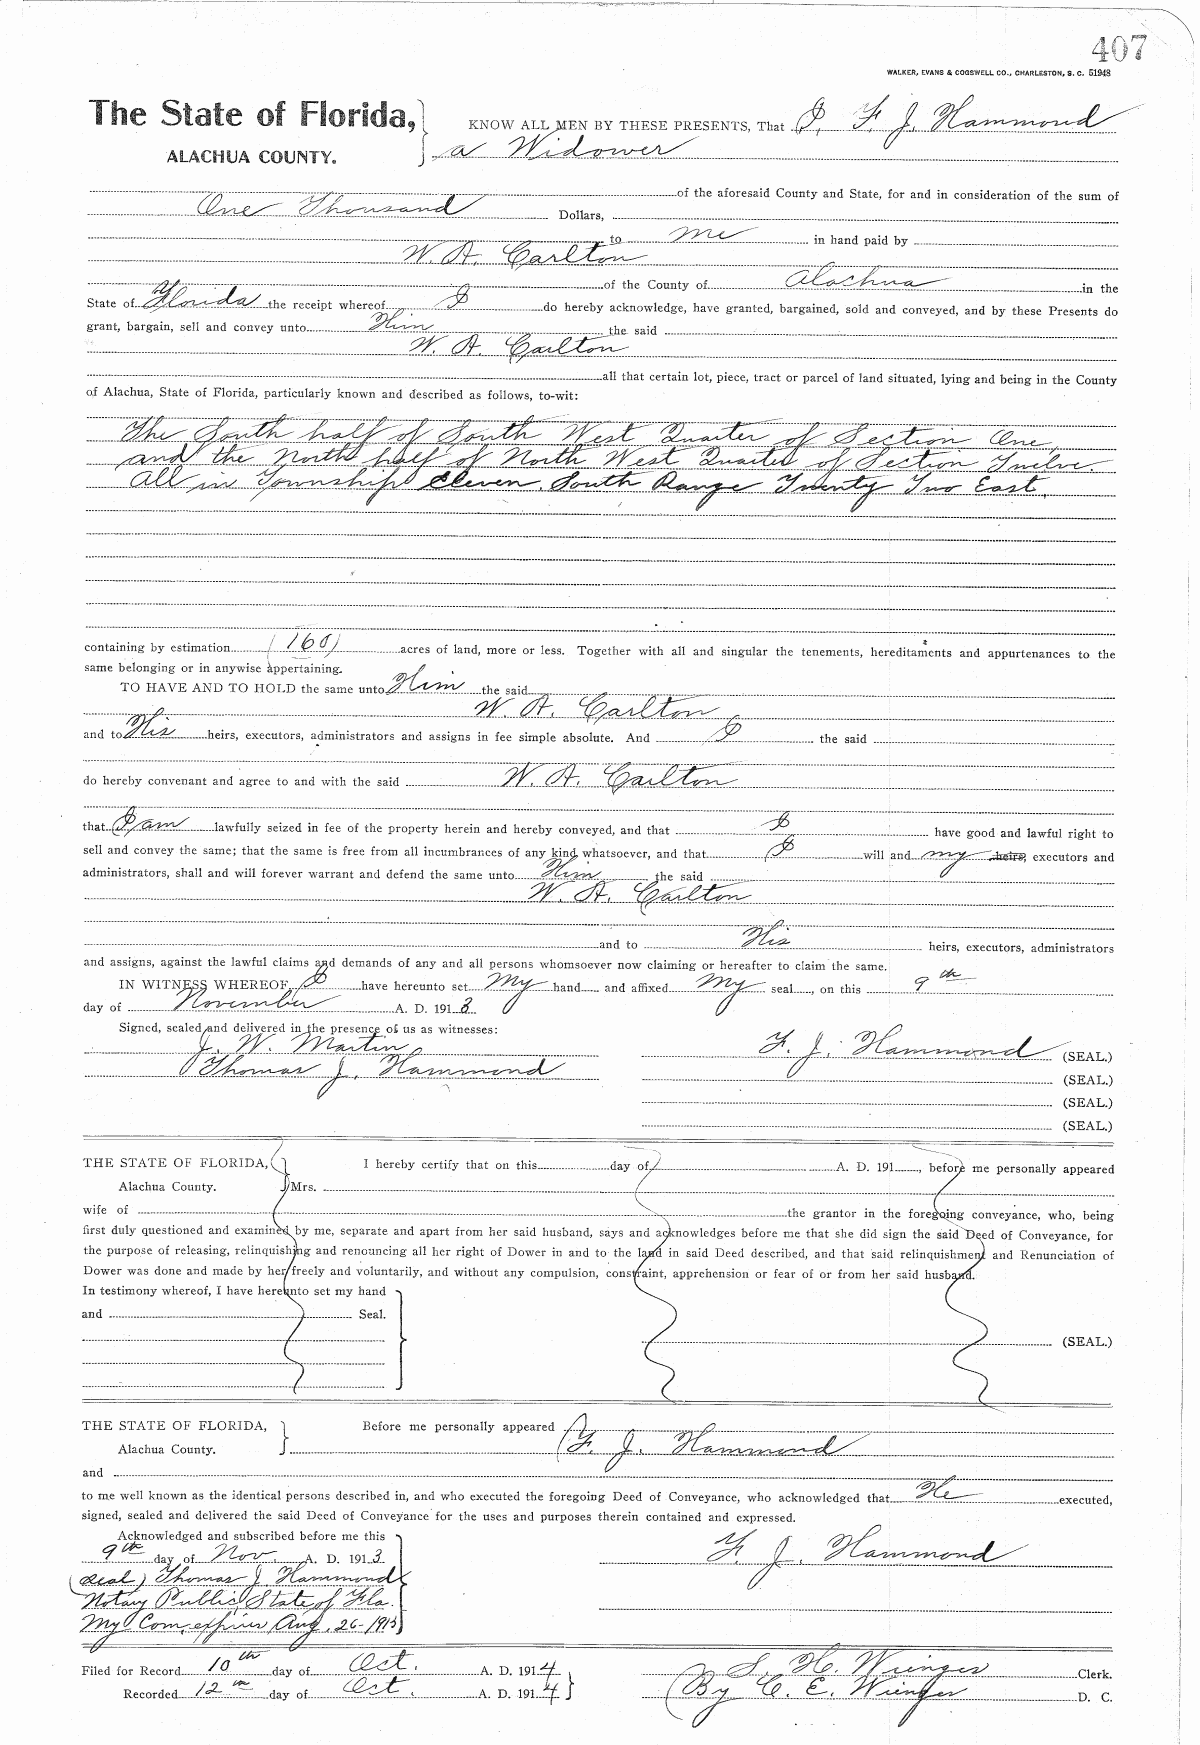 407
WALKER, EVANS & COGSWELL CO., CHARLESTON, S. C. 51948
The State of Florida,
ALACHUA COUNTY.
KNOW ALL MEN BY THESE PRESENTS, That I, F. J. Hammond
a Widower
of the aforesaid County and State, for and in consideration of the sum of
One Thousand Dollars,
to me in hand paid by
W. A. Carlton
of the County of Alachua in the
State of Florida the receipt whereof I do hereby acknowledge, have granted, bargained, sold and conveyed, and by these Presents do
grant, bargain, sell and convey unto Him the said
W. A. Carlton
all that certain lot, piece, tract or parcel of land situated, lying and being in the County
of Alachua, State of Florida, particularly known and described as follows, to-wit:
The South half of South West Quarter of Section One
and the North half of North West Quarter of Section Twelve
All in Township Eleven South Range Twenty Two East.
containing by estimation (160) acres of land, more or less. Together with all and singular the tenements, hereditaments and appurtenances to the
same belonging or in anywise appertaining.
TO HAVE AND TO HOLD the same unto Him the said
W. A. Carlton
and to His heirs, executors, administrators and assigns in fee simple absolute. And I the said
do hereby convenant and agree to and with the said W. A. Carlton
that I am lawfully seized in fee of the property herein and hereby conveyed, and that I have good and lawful right to
sell and convey the same; that the same is free from all incumbrances of any kind whatsoever, and that I will and my heirs, executors and
administrators, shall and will forever warrant and defend the same unto Him the said
W. A. Carlton
and to His heirs, executors, administrators
and assigns, against the lawful claims and demands of any and all persons whomsoever now claiming or hereafter to claim the same.
IN WITNESS WHEREOF, I have hereunto set My hand and affixed My seal, on this 9th
day of November A. D. 1913
Signed, sealed and delivered in the presence of us as witnesses:
J. W. Martin
Thomas J. Hammond
F. J. Hammond (SEAL.)
(SEAL.)
(SEAL.)
(SEAL.)
THE STATE OF FLORIDA,
Alachua County.
I hereby certify that on this day of A. D. 191, before me personally appeared
Mrs.
wife of the grantor in the foregoing conveyance, who, being
first duly questioned and examined by me, separate and apart from her said husband, says and acknowledges before me that she did sign the said Deed of Conveyance, for
the purpose of releasing, relinquishing and renouncing all her right of Dower in and to the land in said Deed described, and that said relinquishment and Renunciation of
Dower was done and made by her freely and voluntarily, and without any compulsion, constraint, apprehension or fear of or from her said husband.
In testimony whereof, I have hereunto set my hand
and Seal.
(SEAL.)
THE STATE OF FLORIDA,
Alachua County.
Before me personally appeared
F. J. Hammond
and
to me well known as the identical persons described in, and who executed the foregoing Deed of Conveyance, who acknowledged that He executed,
signed, sealed and delivered the said Deed of Conveyance for the uses and purposes therein contained and expressed.
Acknowledged and subscribed before me this
9th day of Nov. A. D. 1913
(Seal) Thomas J. Hammond
Notary Public, State of Fla.
My Com, expires Aug. 26-1915
F. J. Hammond
Filed for Record 10th day of Oct. A. D. 1914
Recorded 12th day of Oct. A. D. 1914
S. H. Wienges Clerk.
By C. E. Wienges D. C.